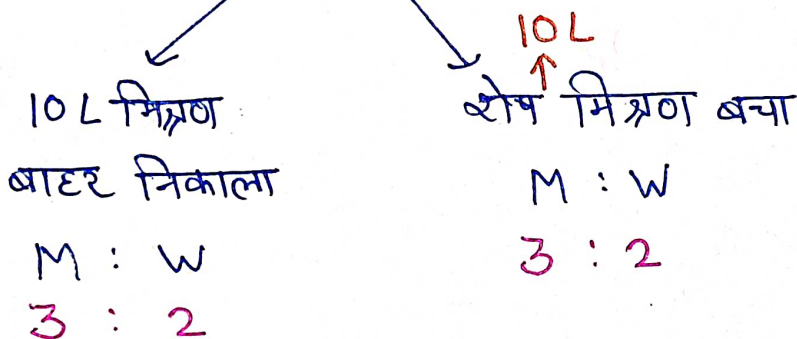 10L
10 L मिश्रण
बाहर निकाला
M : W
3 : 2
शेष मिश्रण बचा
M : W
3 : 2